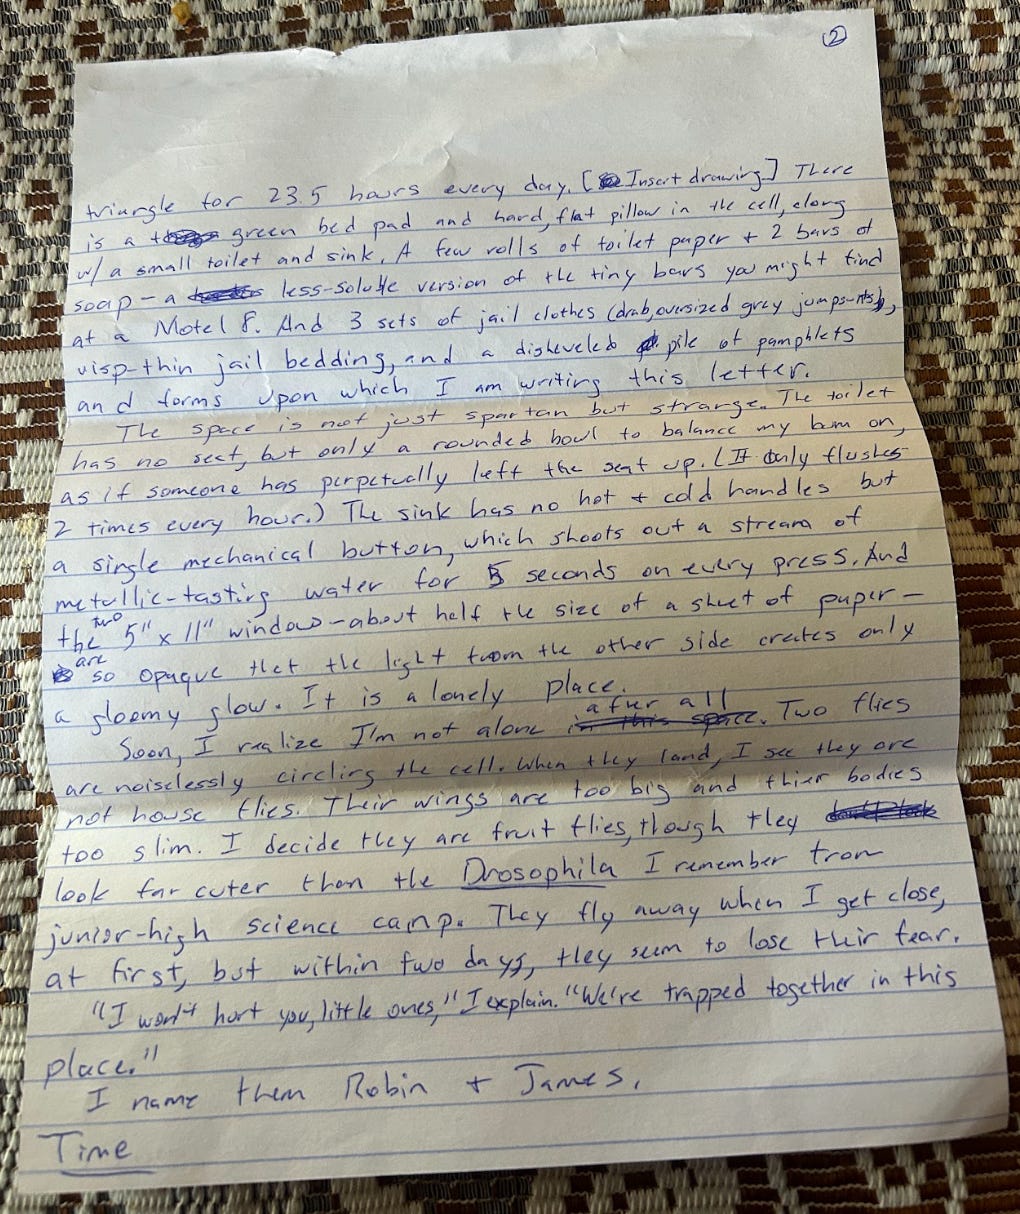 ②
triangle for 23.5 hours every day. [Insert drawing] There
is a green bed pad and hard, flat pillow in the cell, along
w/ a small toilet and sink. A few rolls of toilet paper + 2 bars of
soap – a less-soluble version of the tiny bars you might find
at a Motel 8. And 3 sets of jail clothes (drab, oversized grey jumpsuits),
wisp-thin jail bedding, and a disheveled pile of pamphlets
and forms upon which I am writing this letter.
The space is not just spartan but strange. The toilet
has no seat, but only a rounded bowl to balance my bum on,
as if someone has perpetually left the seat up. (It only flushes
2 times every hour.) The sink has no hot + cold handles but
a single mechanical button, which shoots out a stream of
metallic-tasting water for 5 seconds on every press. And
the two 5" x 11" windows – about half the size of a sheet of paper –
are so opaque that the light from the other side creates only
a gloomy glow. It is a lonely place.
Soon, I realize I'm not alone after all. Two flies
are noiselessly circling the cell. When they land, I see they are
not house flies. Their wings are too big and thier bodies
too slim. I decide they are fruit flies, though they
look far cuter than the Drosophila I remember from
junior-high science camp. They fly away when I get close,
at first, but within two days, they seem to lose their fear.
"I won't hurt you, little ones," I explain. "We're trapped together in this
place."
I name them Robin + James.
Time